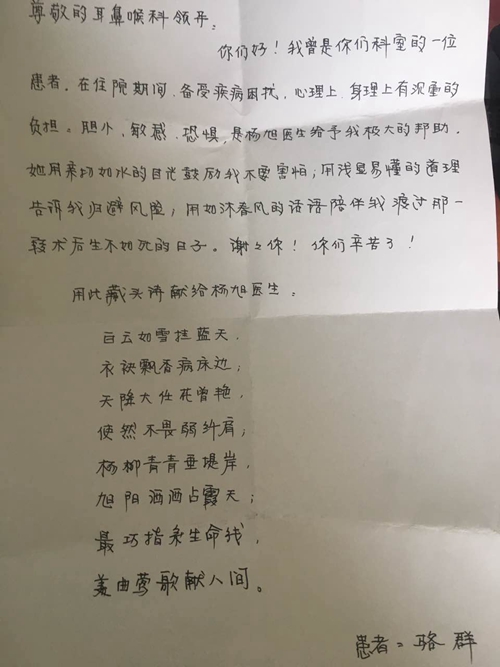 尊敬的耳鼻喉科领导:
你们好!我曾是你们科室的一位
患者,在住院期间、备受疾病困扰,心理上、身理上有沉重的
负担。胆小、敏感、恐惧,是杨旭医生给予我极大的帮助,
她用柔切如水的目光鼓励我不要害怕;用浅显易懂的道理
告诉我归避风险;用如沐春风的话语陪伴我渡过那一
段术后生不如死的日子。谢々你!你们辛苦了!
用此藏头诗献给杨旭医生:
白云如雪挂蓝天,
衣袂飘香病床边;
天降大任花曾艳,
使然不畏弱纤肩;
杨柳青青垂堤岸,
旭阳洒洒占霞天;
最巧指柔生命线,
美曲莺歌献人间。
患者:骆群